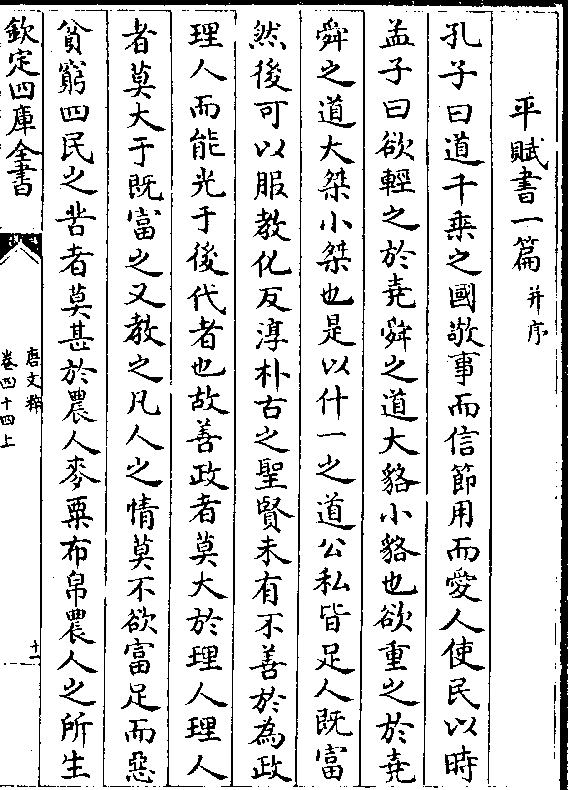 平賦書一篇并序
孔子曰道千乘之國敬事而信節用而愛人使民以時
孟子曰欲輕之於堯舜之道大貉小貉也欲重之於堯
舜之道大桀小桀也是以什一之道公私皆足人既富
然後可以服教化反淳朴古之聖賢未有不善於為政
理人而能光于後代者也故善政者莫大於理人理人
者莫大于既富之又教之凡人之情莫不欲富足而惡
貧窮四民之苦者莫甚於農人麥粟布帛農人之所生
欽定四庫全書
唐文粹
卷四十四上
十一